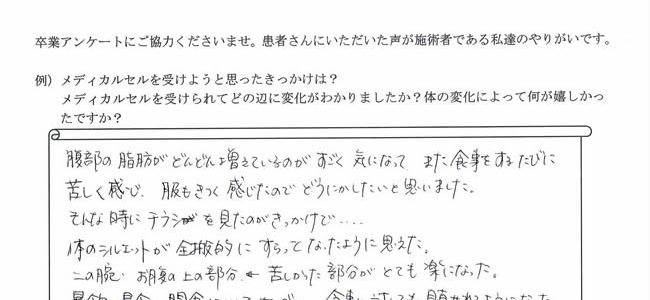 卒業アンケートにご協力くださいませ。患者さんにいただいた声が施術者である私達のやりがいです。
例）メディカルセルを受けようと思ったきっかけは？
メディカルセルを受けられてどの辺に変化がわかりましたか？体の変化によって何が嬉しかっ
たですか？
腹部の脂肪がどんどん増えているのがすごく気になって また食事をするたびに
苦しく感じ、服もきつく感じたのでどうにかしたいと思いました。
そんな時にチラシを見たのがきっかけで....
体のシルエットが全般的にすらっとなったように思えた。
二の腕、お腹の上の部分、←苦しかった部分がとても楽になった。